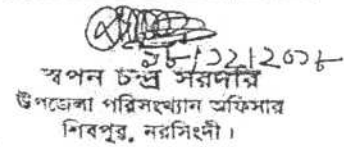 স্বপন চন্দ্র সরদার
উপজেলা পরিসংখ্যান অফিসার
শিবপুর, নরসিংদী।